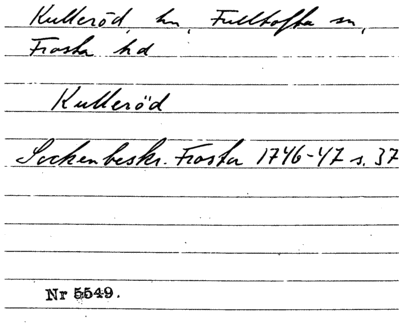 Kulleröd, hn, Fulltofta sn,
Frosta hd
Kulleröd
Sockenbeskr. Frosta 1746-47 s. 37
Nr 5549.